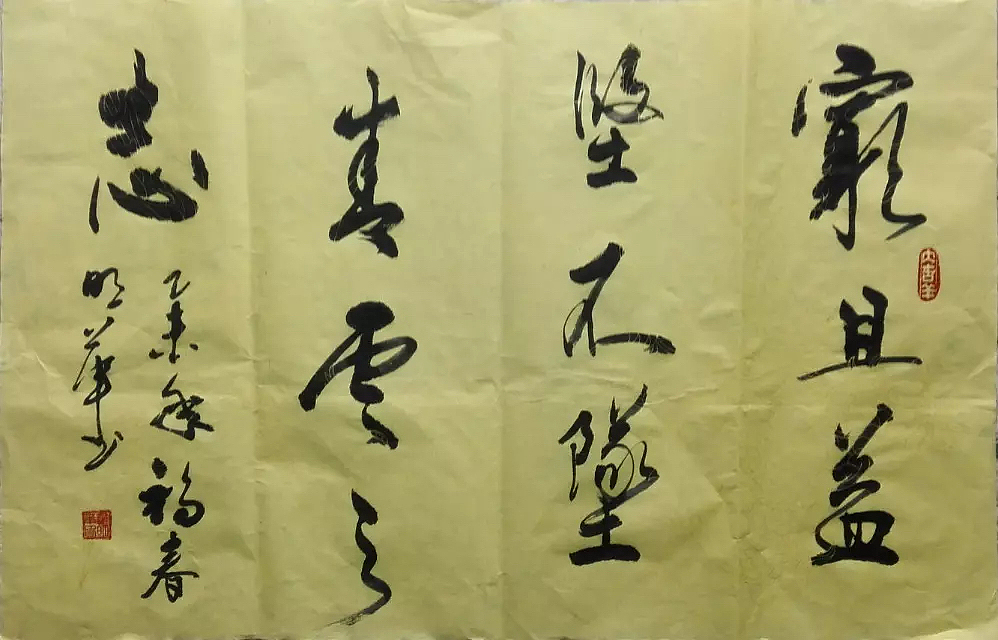 窮且益
大吉羊
堅不墜
青雲之
志
乙未年春
明華书